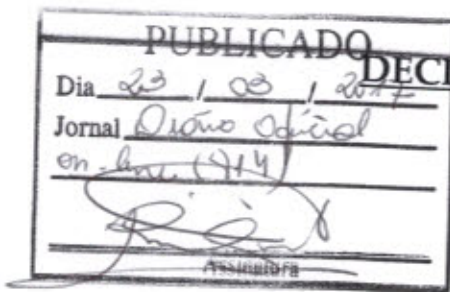 PUBLICADO
DECR
Dia 23 / 03 / 2017
Jornal Diário Oficial
on-line
Assinatura